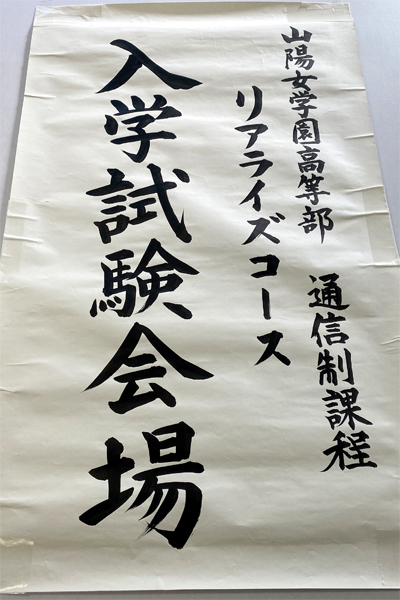 山陽女学園高等部 通信制課程
リアライズコース
入学試験会場